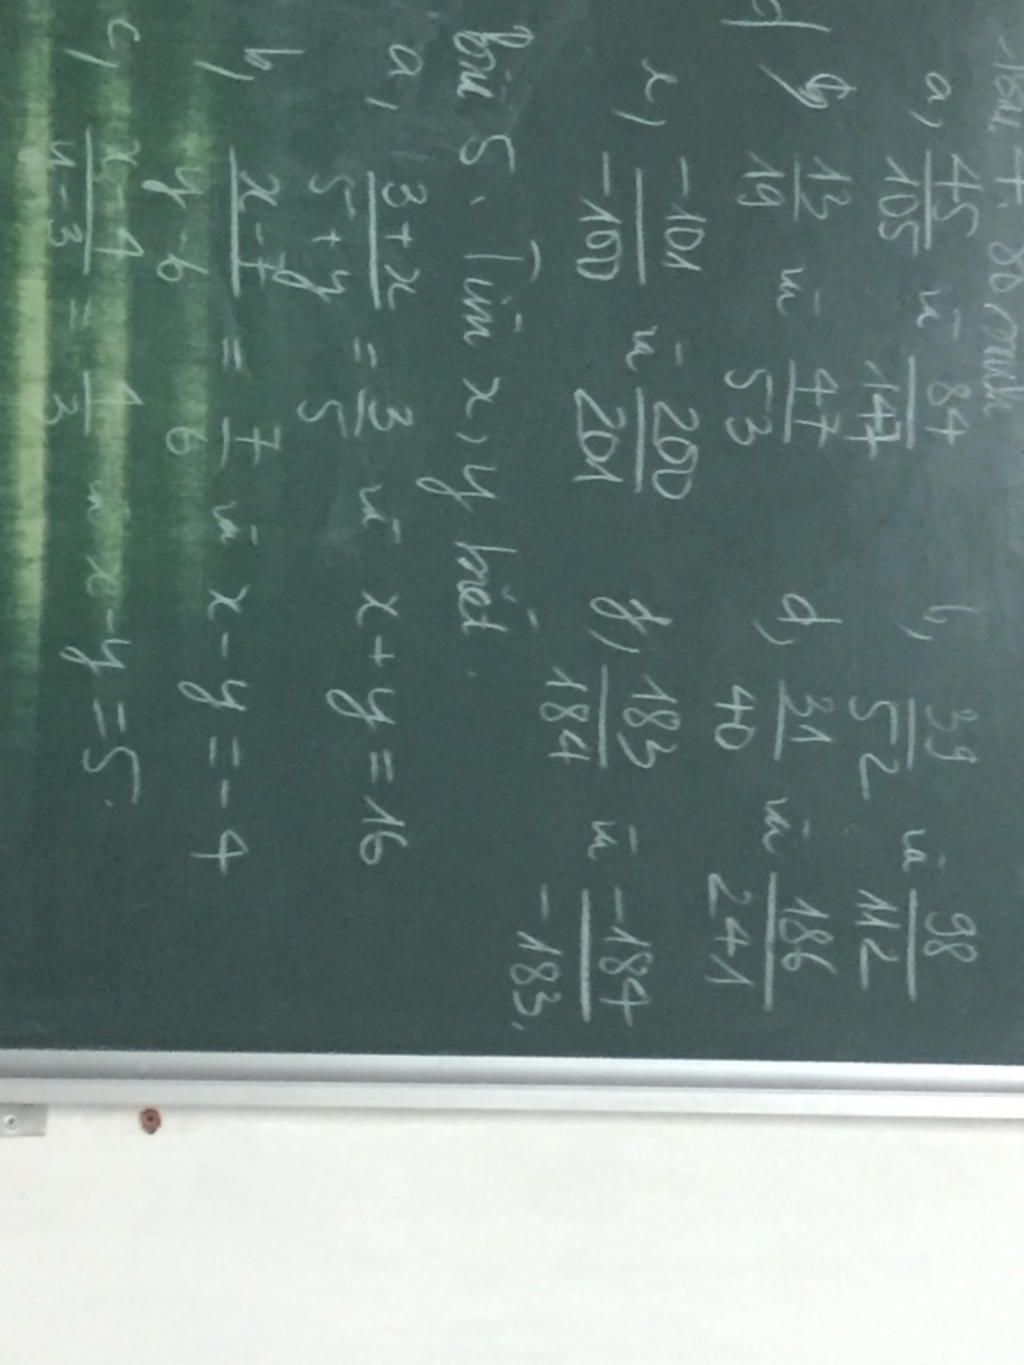 Bài 4. So sánh
a, 45/105 và 84/147 b, 39/52 và 98/112
c, 13/19 và 47/53 d, 31/40 và 186/241
e, -101/-100 và 200/201 f, 183/184 và -184/-183.
Bài 5. Tìm x, y biết.
a, 3+x/5+y = 3/5 và x + y = 16
b, x-7/y-6 = 7/6 và x - y = -4
c, x-4/y-3 = 4/3 và x - y = 5.